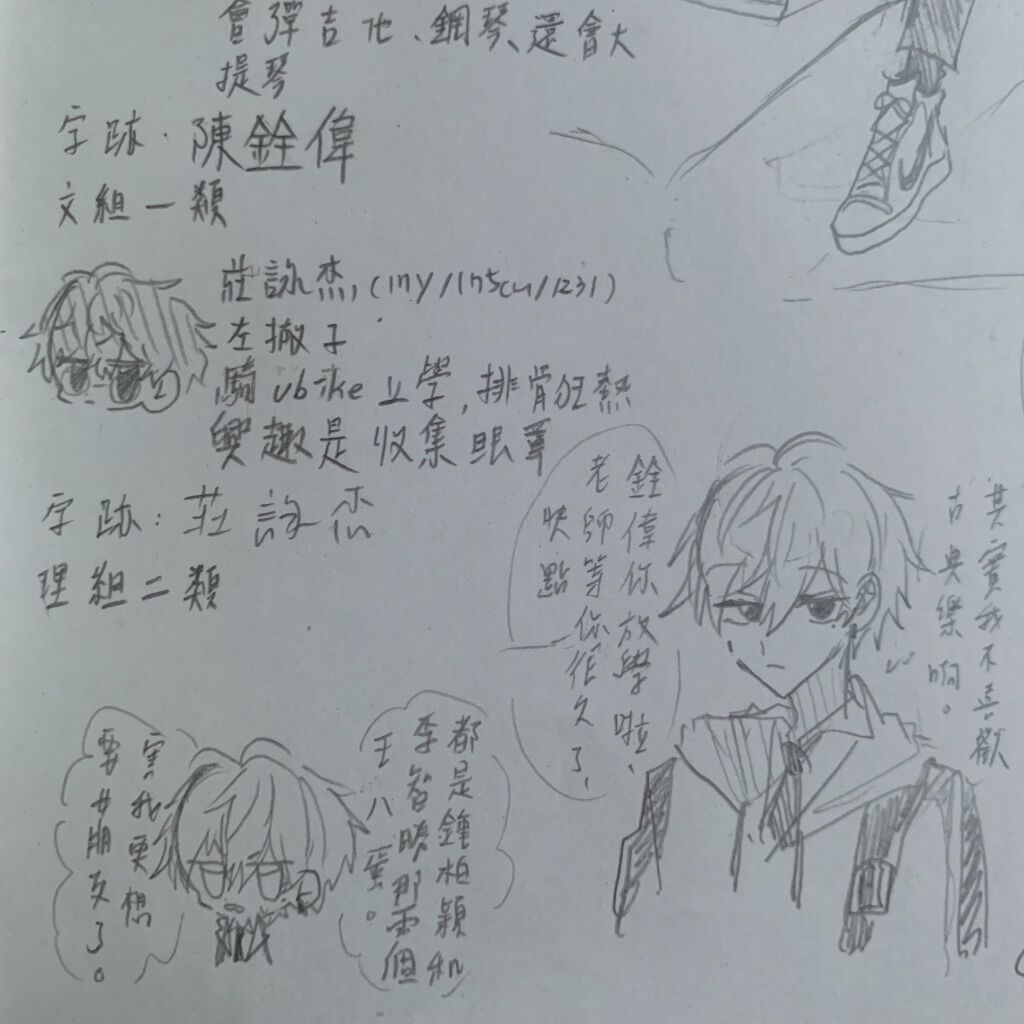 會彈吉他、鋼琴、還會大
提琴
字跡:陳銓偉
文組一類
莊詠杰,(INTJ/195cm/1231)
左撇子
騎ubike上學,排骨狂熱
興趣是收集眼罩
字跡:莊詠杰
理組二類
銓偉你放學啦、
老師等你很久了、
快點
其實我不喜歡
古典樂啊。
都是鐘柏穎和
李智勝那兩個
王八蛋。
害我更想
要女朋友了。